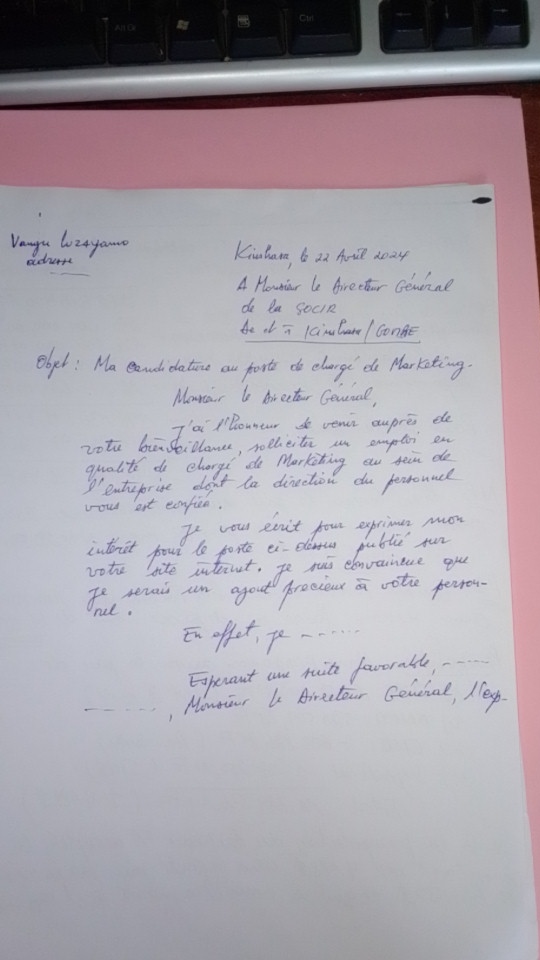 Alt Gr
Ctrl
Vangu Luzayamo
adresse
Kinshasa, le 22 Avril 2024
A Monsieur le Directeur Général
de la SOCIR
de et à Kinshasa/GOMBE
Objet : Ma candidature au poste de chargé de Marketing.
Monsieur le Directeur Général,
J'ai l'honneur de venir auprès de
votre bienvaillance, solliciter un emploi en
qualité de chargé de Marketing au sein de
l'entreprise dont la direction du personnel
vous est confiée.
Je vous écrit pour exprimer mon
intérêt pour le poste ci-dessus publié sur
votre site internet. je suis convaincue que
je serais un ajout precieux à votre person-
nel.
En effet, je ------
Esperant une suite favorable, -----
------, Monsieur le Directeur Général, l'exp-